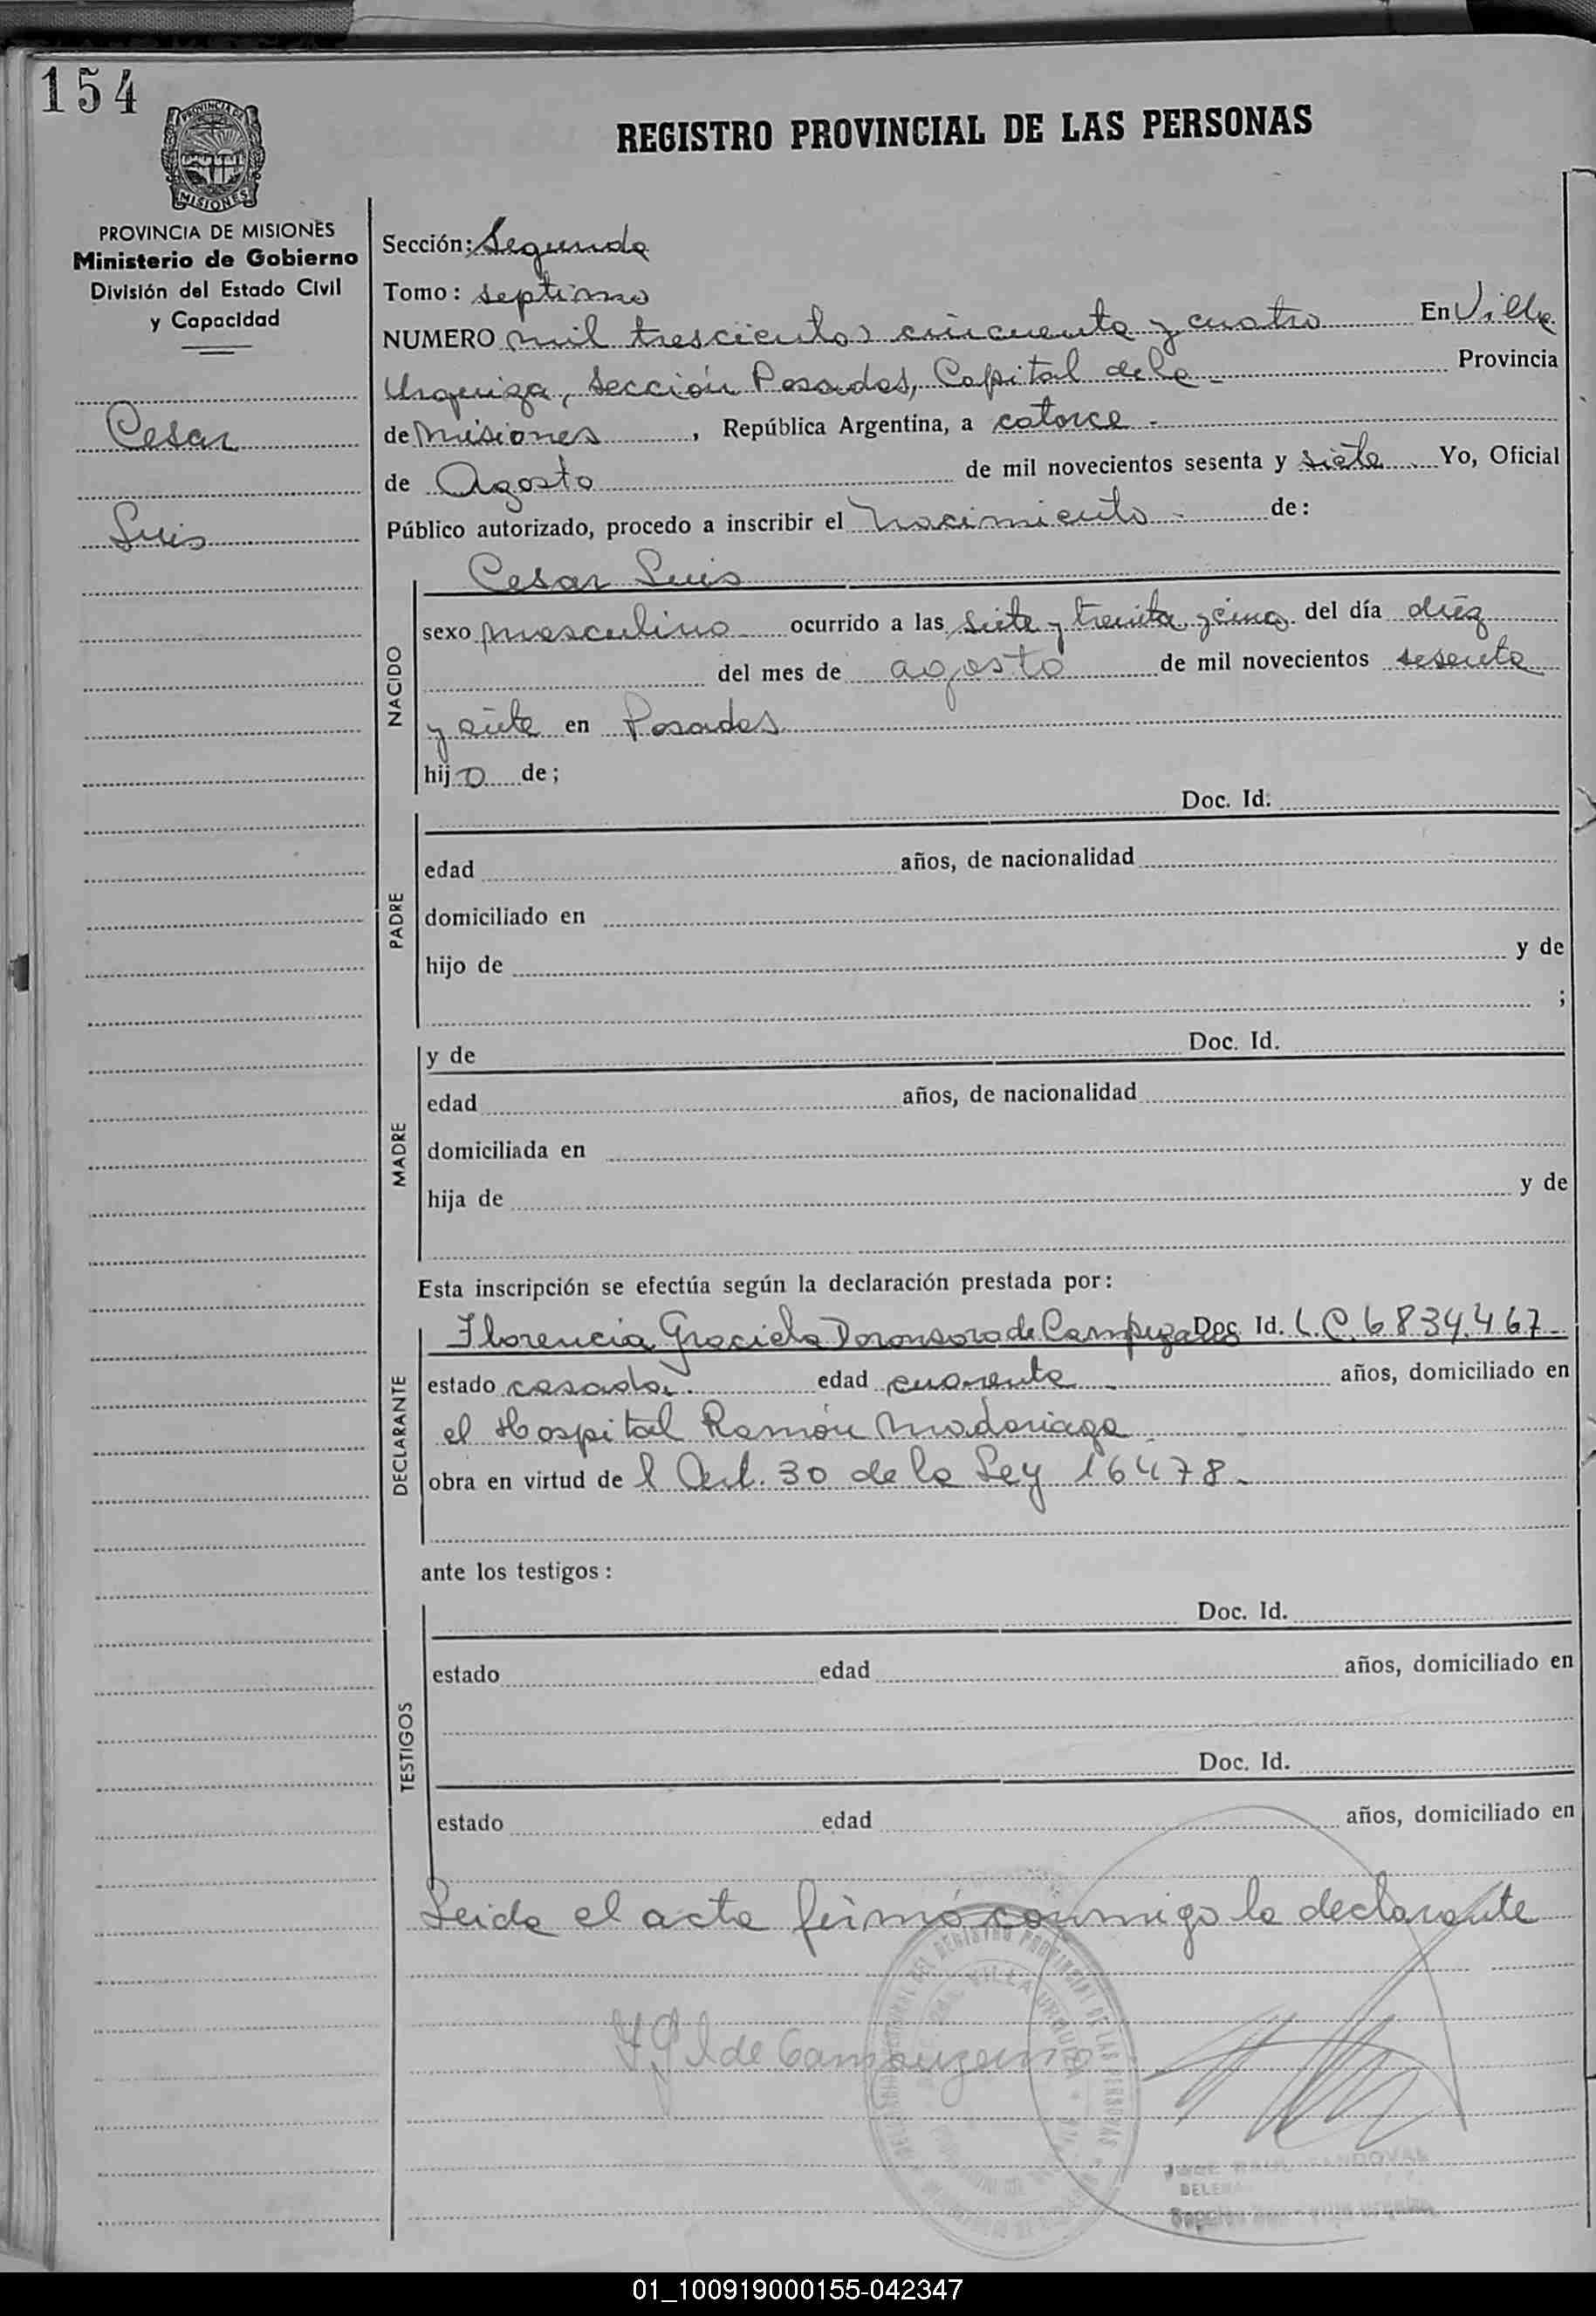 154
PROVINCIA DE
MISIONES
REGISTRO PROVINCIAL DE LAS PERSONAS
PROVINCIA DE MISIONES
Ministerio de Gobierno
División del Estado Civil
y Capacidad
Cesar
Luis
Sección: Segunda
Tomo: septimo
NUMERO mil trescientos cincuenta y cuatro En Villa
Urquiza, Sección Posadas, Capital de la - Provincia
de Misiones, República Argentina, a catorce -
de Agosto de mil novecientos sesenta y siete Yo, Oficial
Público autorizado, procedo a inscribir el nacimiento - de:
Cesar Luis
NACIDO
sexo masculino ocurrido a las siete y treinta y cinco del día diez
del mes de agosto de mil novecientos sesenta
y siete en Posadas
hijo de;
PADRE
Doc. Id.
edad años, de nacionalidad
domiciliado en
hijo de y de
;
MADRE
y de Doc. Id.
edad años, de nacionalidad
domiciliada en
hija de y de
Esta inscripción se efectúa según la declaración prestada por:
DECLARANTE
Florencia Graciela Doronsoro de Doc. Id. L.C. 6834.467-
estado casada edad cuarenta - años, domiciliado en
el Hospital Ramón Madariaga
obra en virtud de l Art. 30 de la Ley 16478-
ante los testigos:
TESTIGOS
Doc. Id.
estado edad años, domiciliado en
Doc. Id.
estado edad años, domiciliado en
Leida el acta firmó conmigo la declarante
DEL REGISTRO PROVINCIAL DE LAS PERSONAS
VILLA URQUIZA
SANDOVAL
01_100919000155-042347